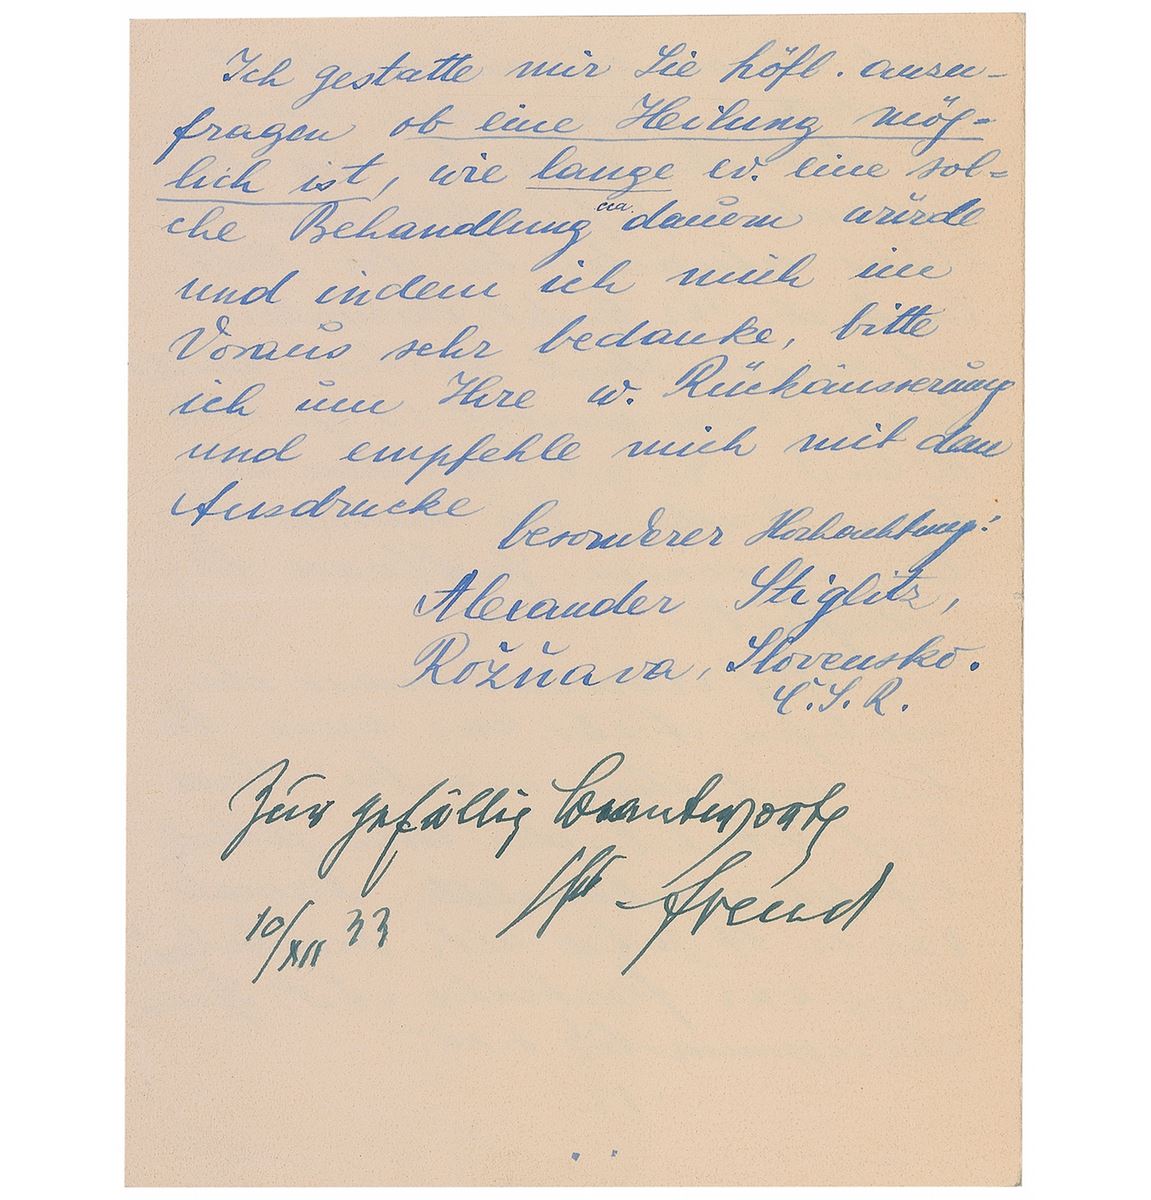 Ich gestatte mir Sie höfl. anzu-
fragen ob eine Heilung mög-
lich ist, wie lange ev. eine sol-
che Behandlung cca. dauern würde
und indem ich mich im
Voraus sehr bedanke, bitte
ich um Ihre w. Rückäusserung
und empfehle mich mit dem
Ausdrucke
besonderer Hochachtung:
Alexander Stiglitz,
Rožňava, Slovensko.
Č.S.R.
Zur gefällig Beantwortg
Freud
10/XII 33